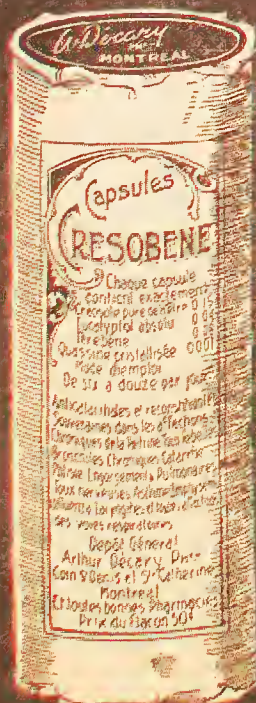 A. Décary
MONTREAL
Capsules
CRESOBENE
Chaque capsule
contient exactement
Creosote pure de hêtre 0 15
Eucalyptol absolu
Terebene
Quassine cristallisée 0001
Mode d'emploi
De six a douze par jour
Anticatarrhales et reconstituantes
Souveraines dans les affections
Chroniques de la Poitrine Toux rebelles
Bronchites Chroniques Catarrhe
Phtisie Engorgements Pulmonaires
Toux nerveuses Asthme
Laryngites et toutes affections
des voies respiratoires
Depôt Géneral
Arthur Décary
Coin St Denis et Ste Catherine
Montreal
Et toutes bonnes Pharmacies
Prix du flacon 50¢